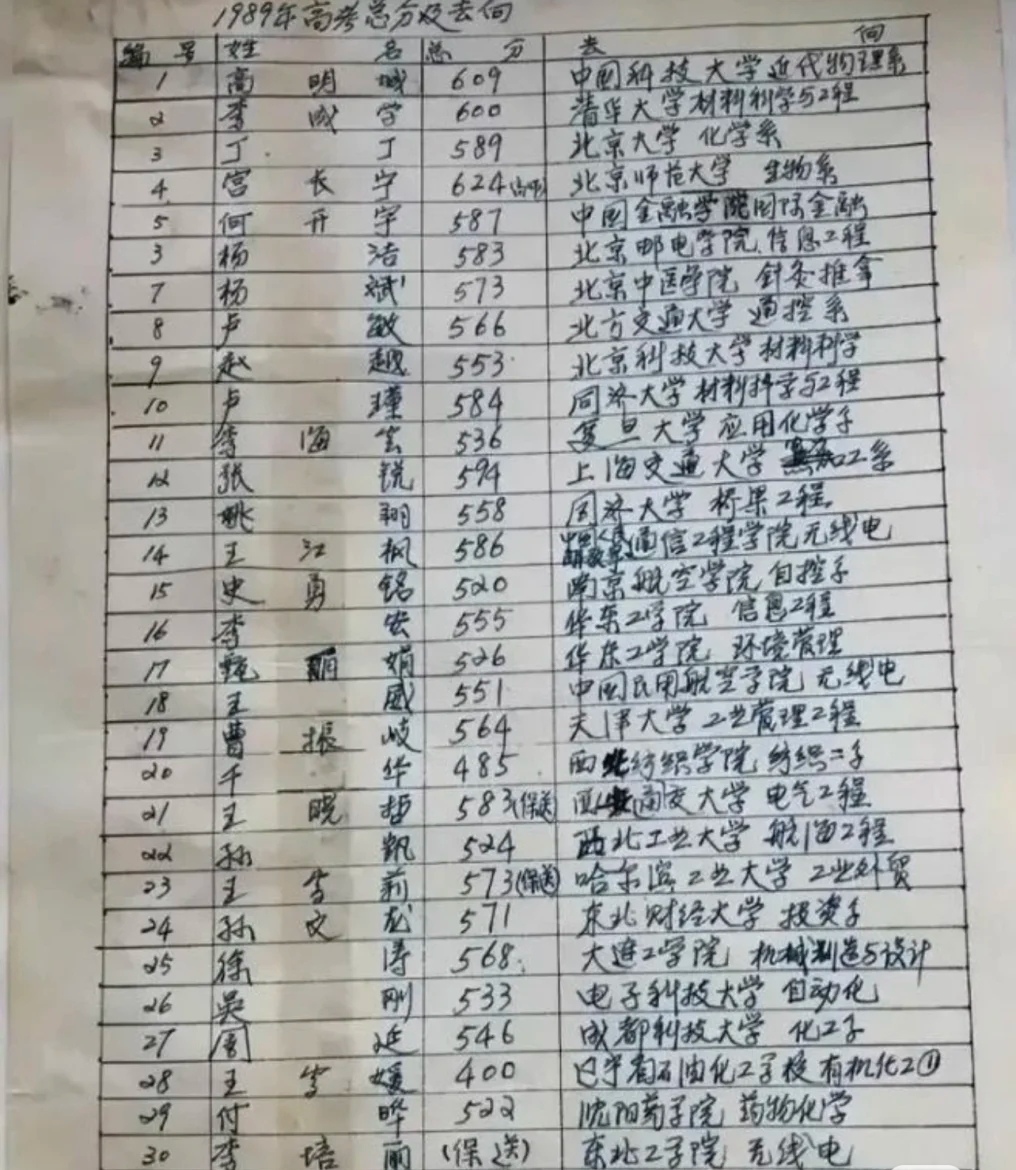 1989年高考总分及去向
编号 姓名 总分 去向
1 高明城 609 中国科技大学近代物理系
2 李成学 600 清华大学材料科学与工程
3 丁丁 589 北京大学 化学系
4 宫长宁 624 北京师范大学 生物系
5 何开宇 587 中国金融学院国际金融
3 杨浩 583 北京邮电学院 信息工程
7 杨斌 573 北京中医学院 针灸推拿
8 卢敏 566 北方交通大学 通控系
9 赵越 553 北京科技大学材料科学
10 卢瑾 584 同济大学材料科学与工程
11 李海 536 复旦大学 应用化学子
12 张锐 594 上海交通大学 加工系
13 姚翔 558 同济大学 桥梁工程
14 王江枫 586 通信工程学院无线电
15 史勇铭 520 南京航空学院 自控子
16 李宏 555 华东工学院 信息工程
17 甄娟 526 华东工学院 环境管理
18 王威 551 中国民用航空学院 无线电
19 曹振岐 564 天津大学 工业管理工程
20 千华 485 西北纺织学院 纺织二子
21 王晓哲 583(保送) 西交大学 电气工程
22 孙凯 524 西北工业大学 航海工程
23 王雪莉 573(保送) 哈尔滨工业大学 工业外贸
24 孙文龙 571 东北财经大学 投资子
25 徐涛 568 大连工学院 机械制造与设计
26 吴刚 533 电子科技大学 自动化
27 周延 546 成都科技大学 化工子
28 王雪媛 400 石油化工学校 有机化工①
29 付晔 522 沈阳药学院 药物化学
30 李培丽 (保送) 东北工学院 无线电